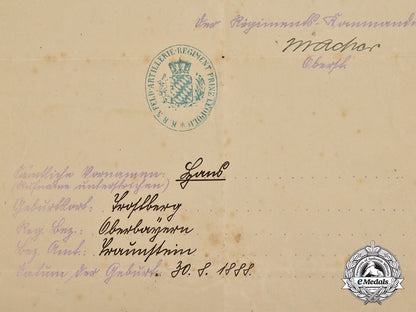 Der Regiments-Kommand
Macher
Oberst
K.B.3.FELD-ARTILLERIE-REGIMENT PRINZ LEOPOLD
Sämtliche Vornamen: Hans
(Rufname unterstrichen)
Geburtsort: Trostberg
Reg. Bez.: Oberbayern
Bez. Amt: Traunstein
Datum der Geburt: 30. 8. 1888
eMedals